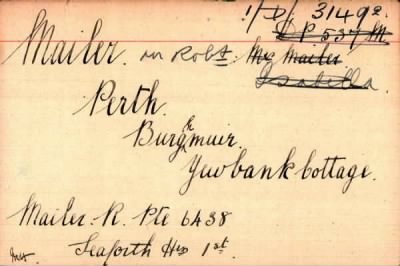 1/D/ 3149a.
D P 537 M
Mailer. on Robt. Mrs Mailer
Isabella.
Perth.
Burghmuir.
Yewbank Cottage.
Mailer. R. Pte 6A38
Seaforth Hrs 1st.